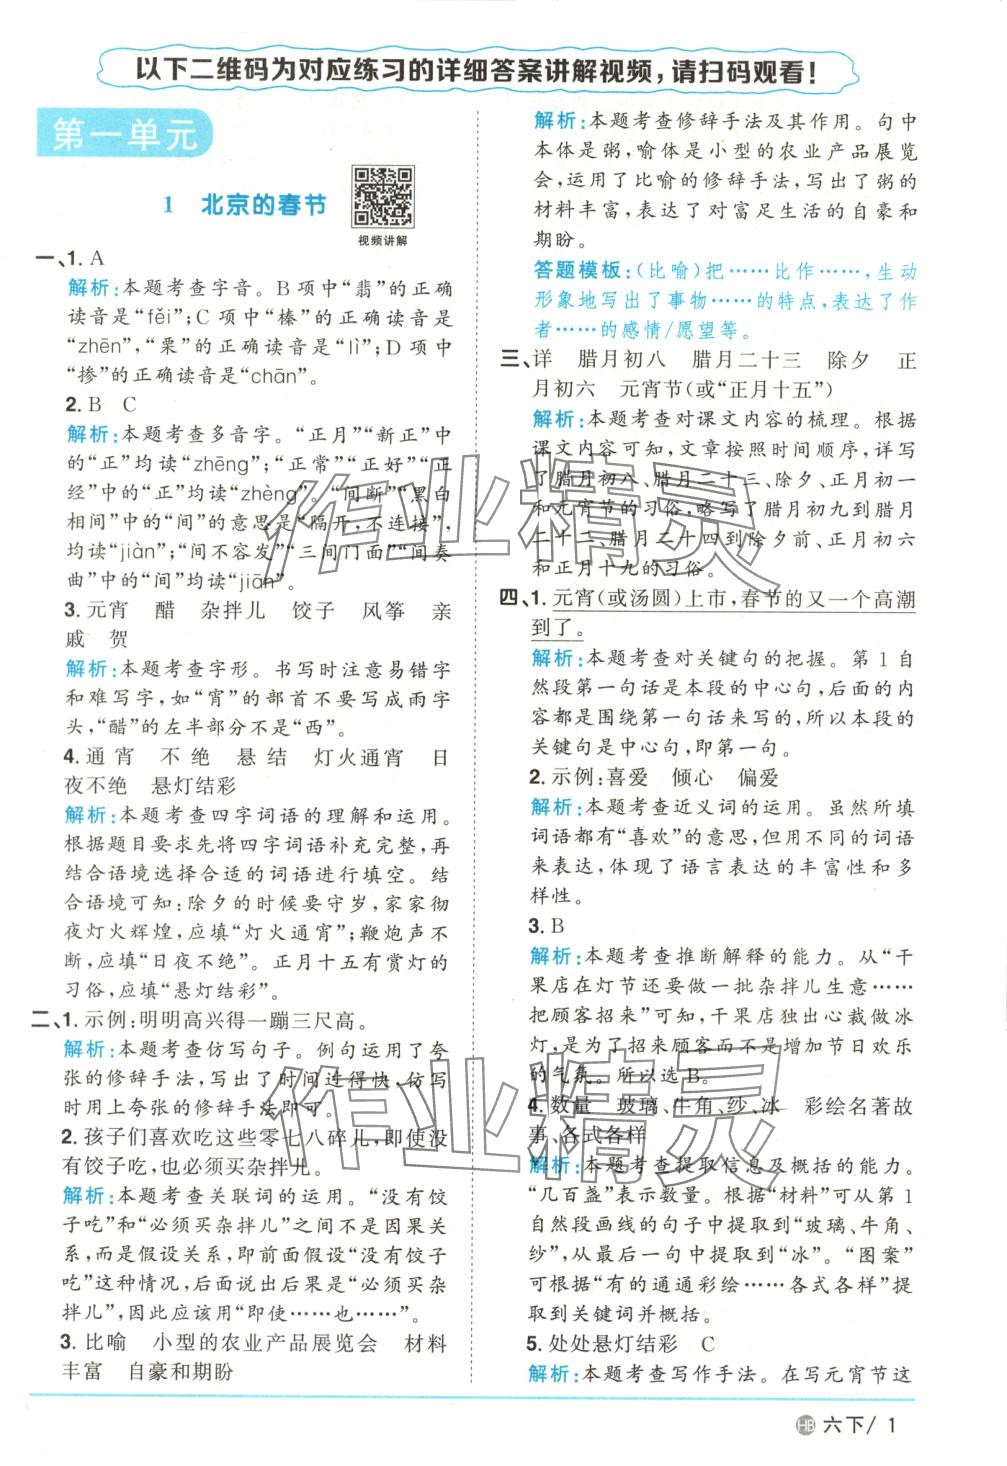 以下二维码为对应练习的详细答案讲解视频，请扫码观看！
第一单元
1 北京的春节
视频讲解
一、1. A
解析：本题考查字音。B项中“翡”的正确
读音是“fěi”；C项中“榛”的正确读音是
“zhēn”，“栗”的正确读音是“lì”；D项中
“掺”的正确读音是“chān”。
2. B C
解析：本题考查多音字。“正月”“新正”中
的“正”均读“zhēng”；“正常”“正好”“正
经”中的“正”均读“zhèng”。“间断”“黑白
相间”中的“间”的意思是“隔开，不连接”，
均读“jiàn”；“间不容发”“三间门面”“间奏
曲”中的“间”均读“jiān”。
3. 元宵 醋 杂拌儿 饺子 风筝 亲
戚 贺
解析：本题考查字形。书写时注意易错字
和难写字，如“宵”的部首不要写成雨字
头，“醋”的左半部分不是“西”。
4. 通宵 不绝 悬结 灯火通宵 日
夜不绝 悬灯结彩
解析：本题考查四字词语的理解和运用。
根据题目要求先将四字词语补充完整，再
结合语境选择合适的词语进行填空。结
合语境可知：除夕的时候要守岁，家家彻
夜灯火辉煌，应填“灯火通宵”；鞭炮声不
断，应填“日夜不绝”。正月十五有赏灯的
习俗，应填“悬灯结彩”。
二、1. 示例：明明高兴得一蹦三尺高。
解析：本题考查仿写句子。例句运用了夸
张的修辞手法，写出了时间过得快，仿写
时用上夸张的修辞手法即可。
2. 孩子们喜欢吃这些零七八碎儿，即使没
有饺子吃，也必须买杂拌儿。
解析：本题考查关联词的运用。“没有饺
子吃”和“必须买杂拌儿”之间不是因果关
系，而是假设关系，即前面假设“没有饺子
吃”这种情况，后面说出后果是“必须买杂
拌儿”，因此应该用“即使……也……”。
3. 比喻 小型的农业产品展览会 材料
丰富 自豪和期盼
解析：本题考查修辞手法及其作用。句中
本体是粥，喻体是小型的农业产品展览
会，运用了比喻的修辞手法，写出了粥的
材料丰富，表达了对富足生活的自豪和
期盼。
答题模板：（比喻）把……比作……，生动
形象地写出了事物……的特点，表达了作
者……的感情/愿望等。
三、详 腊月初八 腊月二十三 除夕 正
月初六 元宵节（或“正月十五”）
解析：本题考查对课文内容的梳理。根据
课文内容可知，文章按照时间顺序，详写
了腊月初八、腊月二十三、除夕、正月初一
和元宵节的习俗，略写了腊月初九到腊月
二十二、腊月二十四到除夕前、正月初六
和正月十九的习俗。
四、1. 元宵（或汤圆）上市，春节的又一个高潮
到了。
解析：本题考查对关键句的把握。第1自
然段第一句话是本段的中心句，后面的内
容都是围绕第一句话来写的，所以本段的
关键句是中心句，即第一句。
2. 示例：喜爱 倾心 偏爱
解析：本题考查近义词的运用。虽然所填
词语都有“喜欢”的意思，但用不同的词语
来表达，体现了语言表达的丰富性和多
样性。
3. B
解析：本题考查推断解释的能力。从“干
果店在灯节还要做一批杂拌儿生意……
把顾客招来”可知，干果店独出心裁做冰
灯，是为了招来顾客而不是增加节日欢乐
的气氛。所以选B。
4. 数量 玻璃、牛角、纱、冰 彩绘名著故
事、各式各样
解析：本题考查提取信息及概括的能力。
“几百盏”表示数量。根据“材料”可从第1
自然段画线的句子中提取到“玻璃、牛角、
纱”，从最后一句中提取到“冰”。“图案”
可根据“有的通通彩绘……各式各样”提
取到关键词并概括。
5. 处处悬灯结彩 C
解析：本题考查写作手法。在写元宵节这
HB 六下/ 1
作业精灵
作业精灵